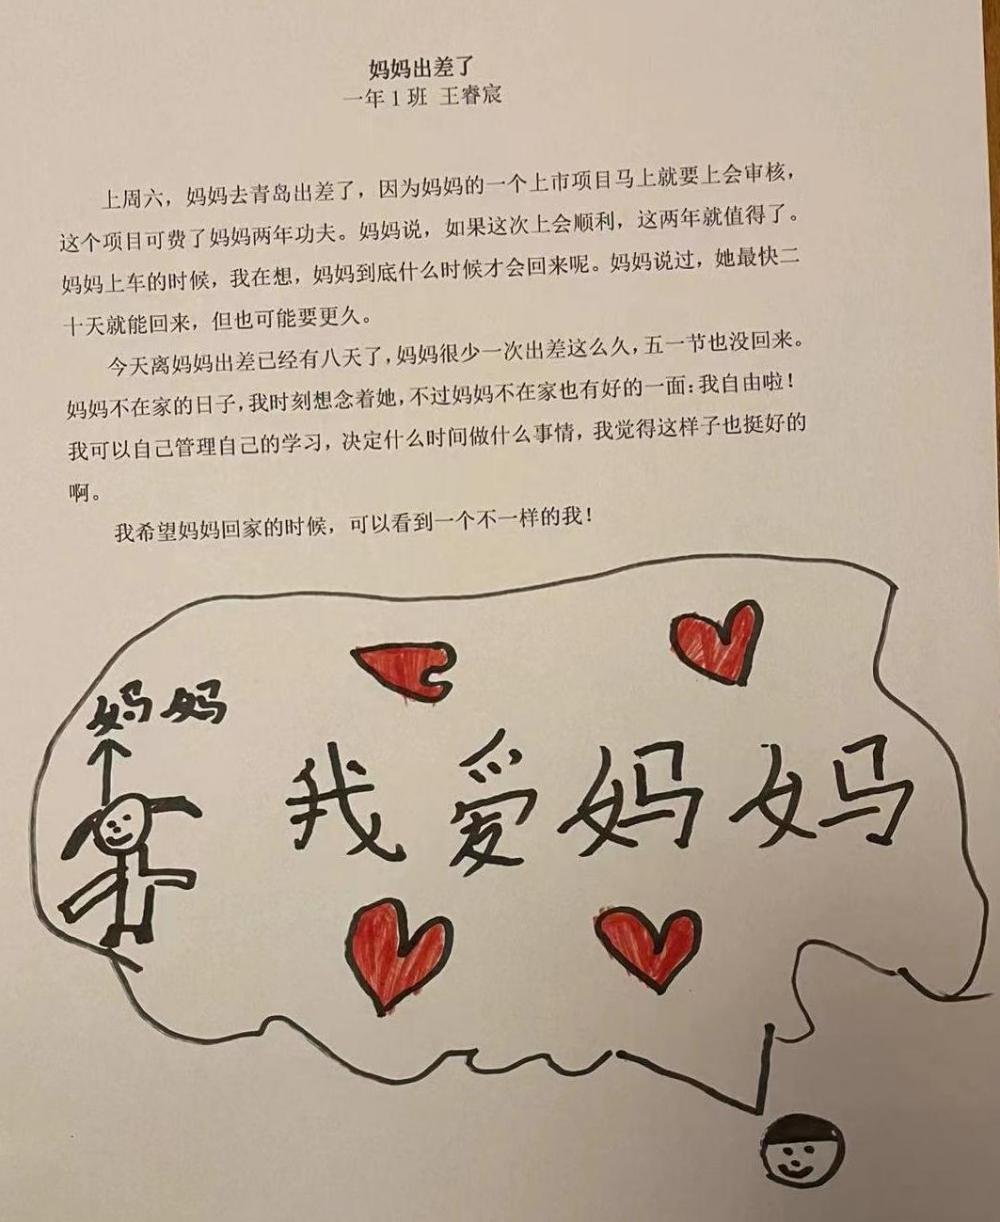 妈妈出差了
一年1班 王睿宸
上周六，妈妈去青岛出差了，因为妈妈的一个上市项目马上就要上会审核，
这个项目可费了妈妈两年功夫。妈妈说，如果这次上会顺利，这两年就值得了。
妈妈上车的时候，我在想，妈妈到底什么时候才会回来呢。妈妈说过，她最快二
十天就能回来，但也可能要更久。
今天离妈妈出差已经有八天了，妈妈很少一次出差这么久，五一节也没回来。
妈妈不在家的日子，我时刻想念着她，不过妈妈不在家也有好的一面：我自由啦！
我可以自己管理自己的学习，决定什么时间做什么事情，我觉得这样子也挺好的
啊。
我希望妈妈回家的时候，可以看到一个不一样的我！
妈妈
我爱妈妈